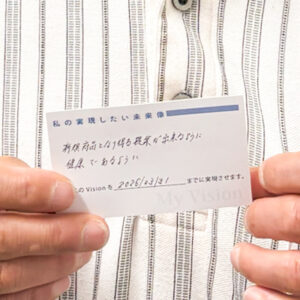 私の実現したい未来像
新規商品となり得る提案が出来るように
健康であるように
このVisionを 2026/03/31 までに実現させます。
My Vision